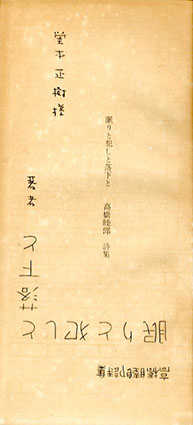 眠りと犯しと落下と　高橋睦郎　詩集
堂本正樹様
著者
眠りと犯しと
落下と
高橋睦郎詩集